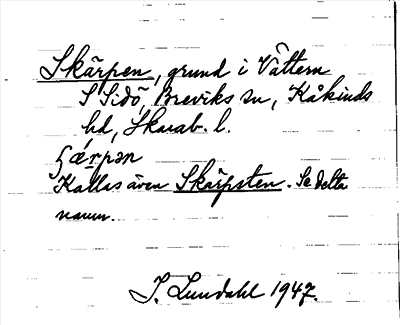 Skärpen, grund i Vättern
S Sidö, Breviks sn, Kåkinds
hd, Skarab. l.
ʂæ̀rpən
Kallas även Skärpsten. Se detta
namn.
I. Lundahl 1947.